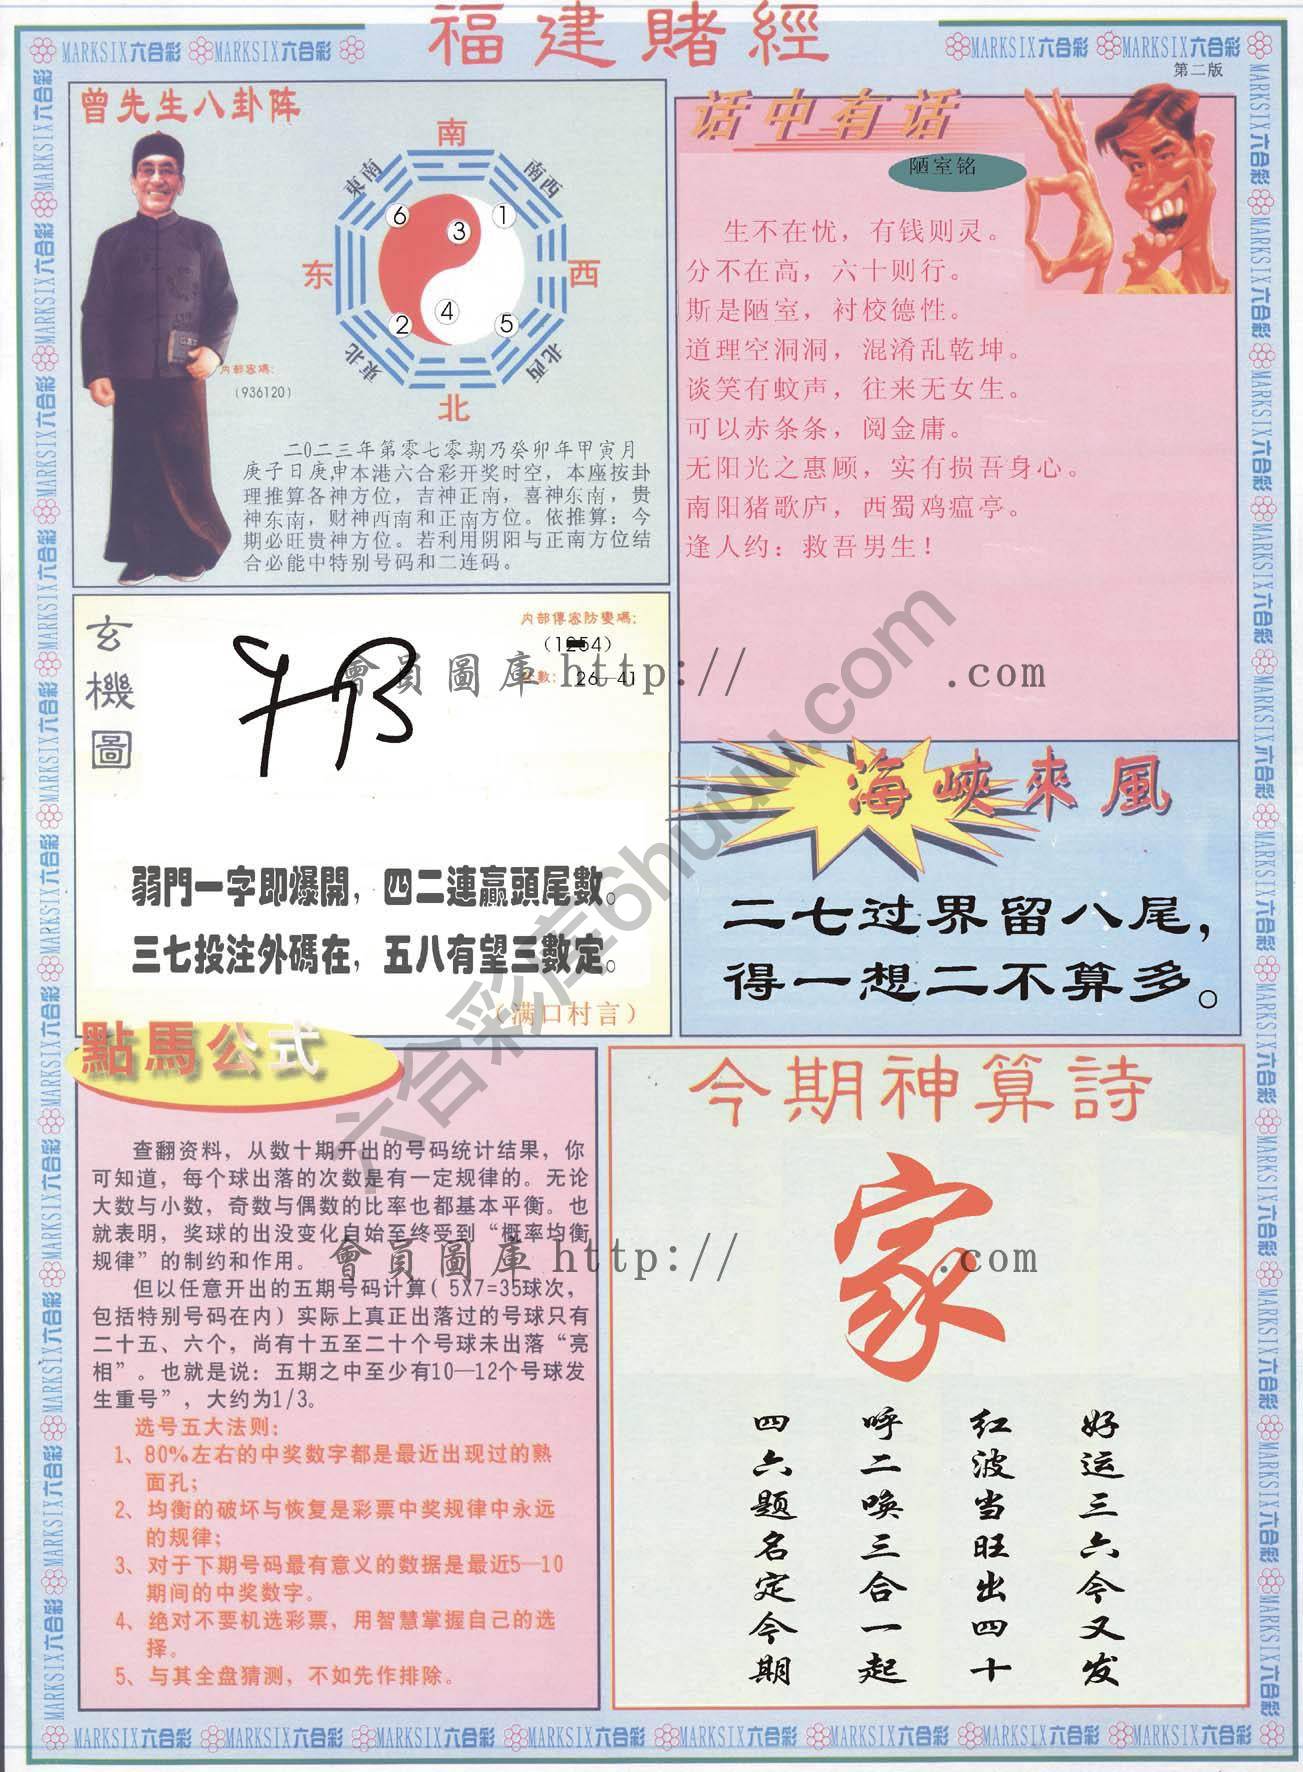 福建賭經
MARKSIX六合彩 MARKSIX六合彩
MARKSIX六合彩 MARKSIX六合彩
第二版
曾先生八卦阵
南
東南
南西
6
3
1
东
西
2
4
5
東北
北西
北
内部密碼:
(936120)
二0二三年第零七零期乃癸卯年甲寅月
庚子日庚申本港六合彩开奖时空，本座按卦
理推算各神方位，吉神正南，喜神东南，贵
神东南，财神西南和正南方位。依推算：今
期必旺贵神方位。若利用阴阳与正南方位结
合必能中特别号码和二连码。
话中有话
陋室铭
生不在忧，有钱则灵。
分不在高，六十则行。
斯是陋室，衬校德性。
道理空洞洞，混淆乱乾坤。
谈笑有蚊声，往来无女生。
可以赤条条，阅金庸。
无阳光之惠顾，实有损吾身心。
南阳猪歌庐，西蜀鸡瘟亭。
逢人约：救吾男生！
玄機圖
内部傳密防變碼:
數: 26—41
會員圖庫 http:// .com
弱門一字即爆開，四二連贏頭尾數。
三七投注外碼在，五八有望三數定。
（满口村言）
海峽來風
二七过界留八尾，
得一想二不算多。
六合彩库6huuu.com
點馬公式
查翻资料，从数十期开出的号码统计结果，你
可知道，每个球出落的次数是有一定规律的。无论
大数与小数，奇数与偶数的比率也都基本平衡。也
就表明，奖球的出没变化自始至终受到“概率均衡
规律”的制约和作用。
但以任意开出的五期号码计算( 5X7=35球次，
包括特别号码在内）实际上真正出落过的号球只有
二十五、六个，尚有十五至二十个号球未出落“亮
相”。也就是说：五期之中至少有10—12个号球发
生重号”，大约为1/3。
选号五大法则：
1、80%左右的中奖数字都是最近出现过的熟
面孔；
2、均衡的破坏与恢复是彩票中奖规律中永远
的规律；
3、对于下期号码最有意义的数据是最近5—10
期间的中奖数字。
4、绝对不要机选彩票，用智慧掌握自己的选
择。
5、与其全盘猜测，不如先作排除。
會員圖庫 http:// .com
今期神算詩
家
好运三六今又发
红波当旺出四十
呼二唤三合一起
四六题名定今期
MARKSIX六合彩 MARKSIX六合彩 MARKSIX六合彩 MARKSIX六合彩 MARKSIX六合彩 MARKSIX六合彩 MARKSIX六合彩 MARKSIX六合彩